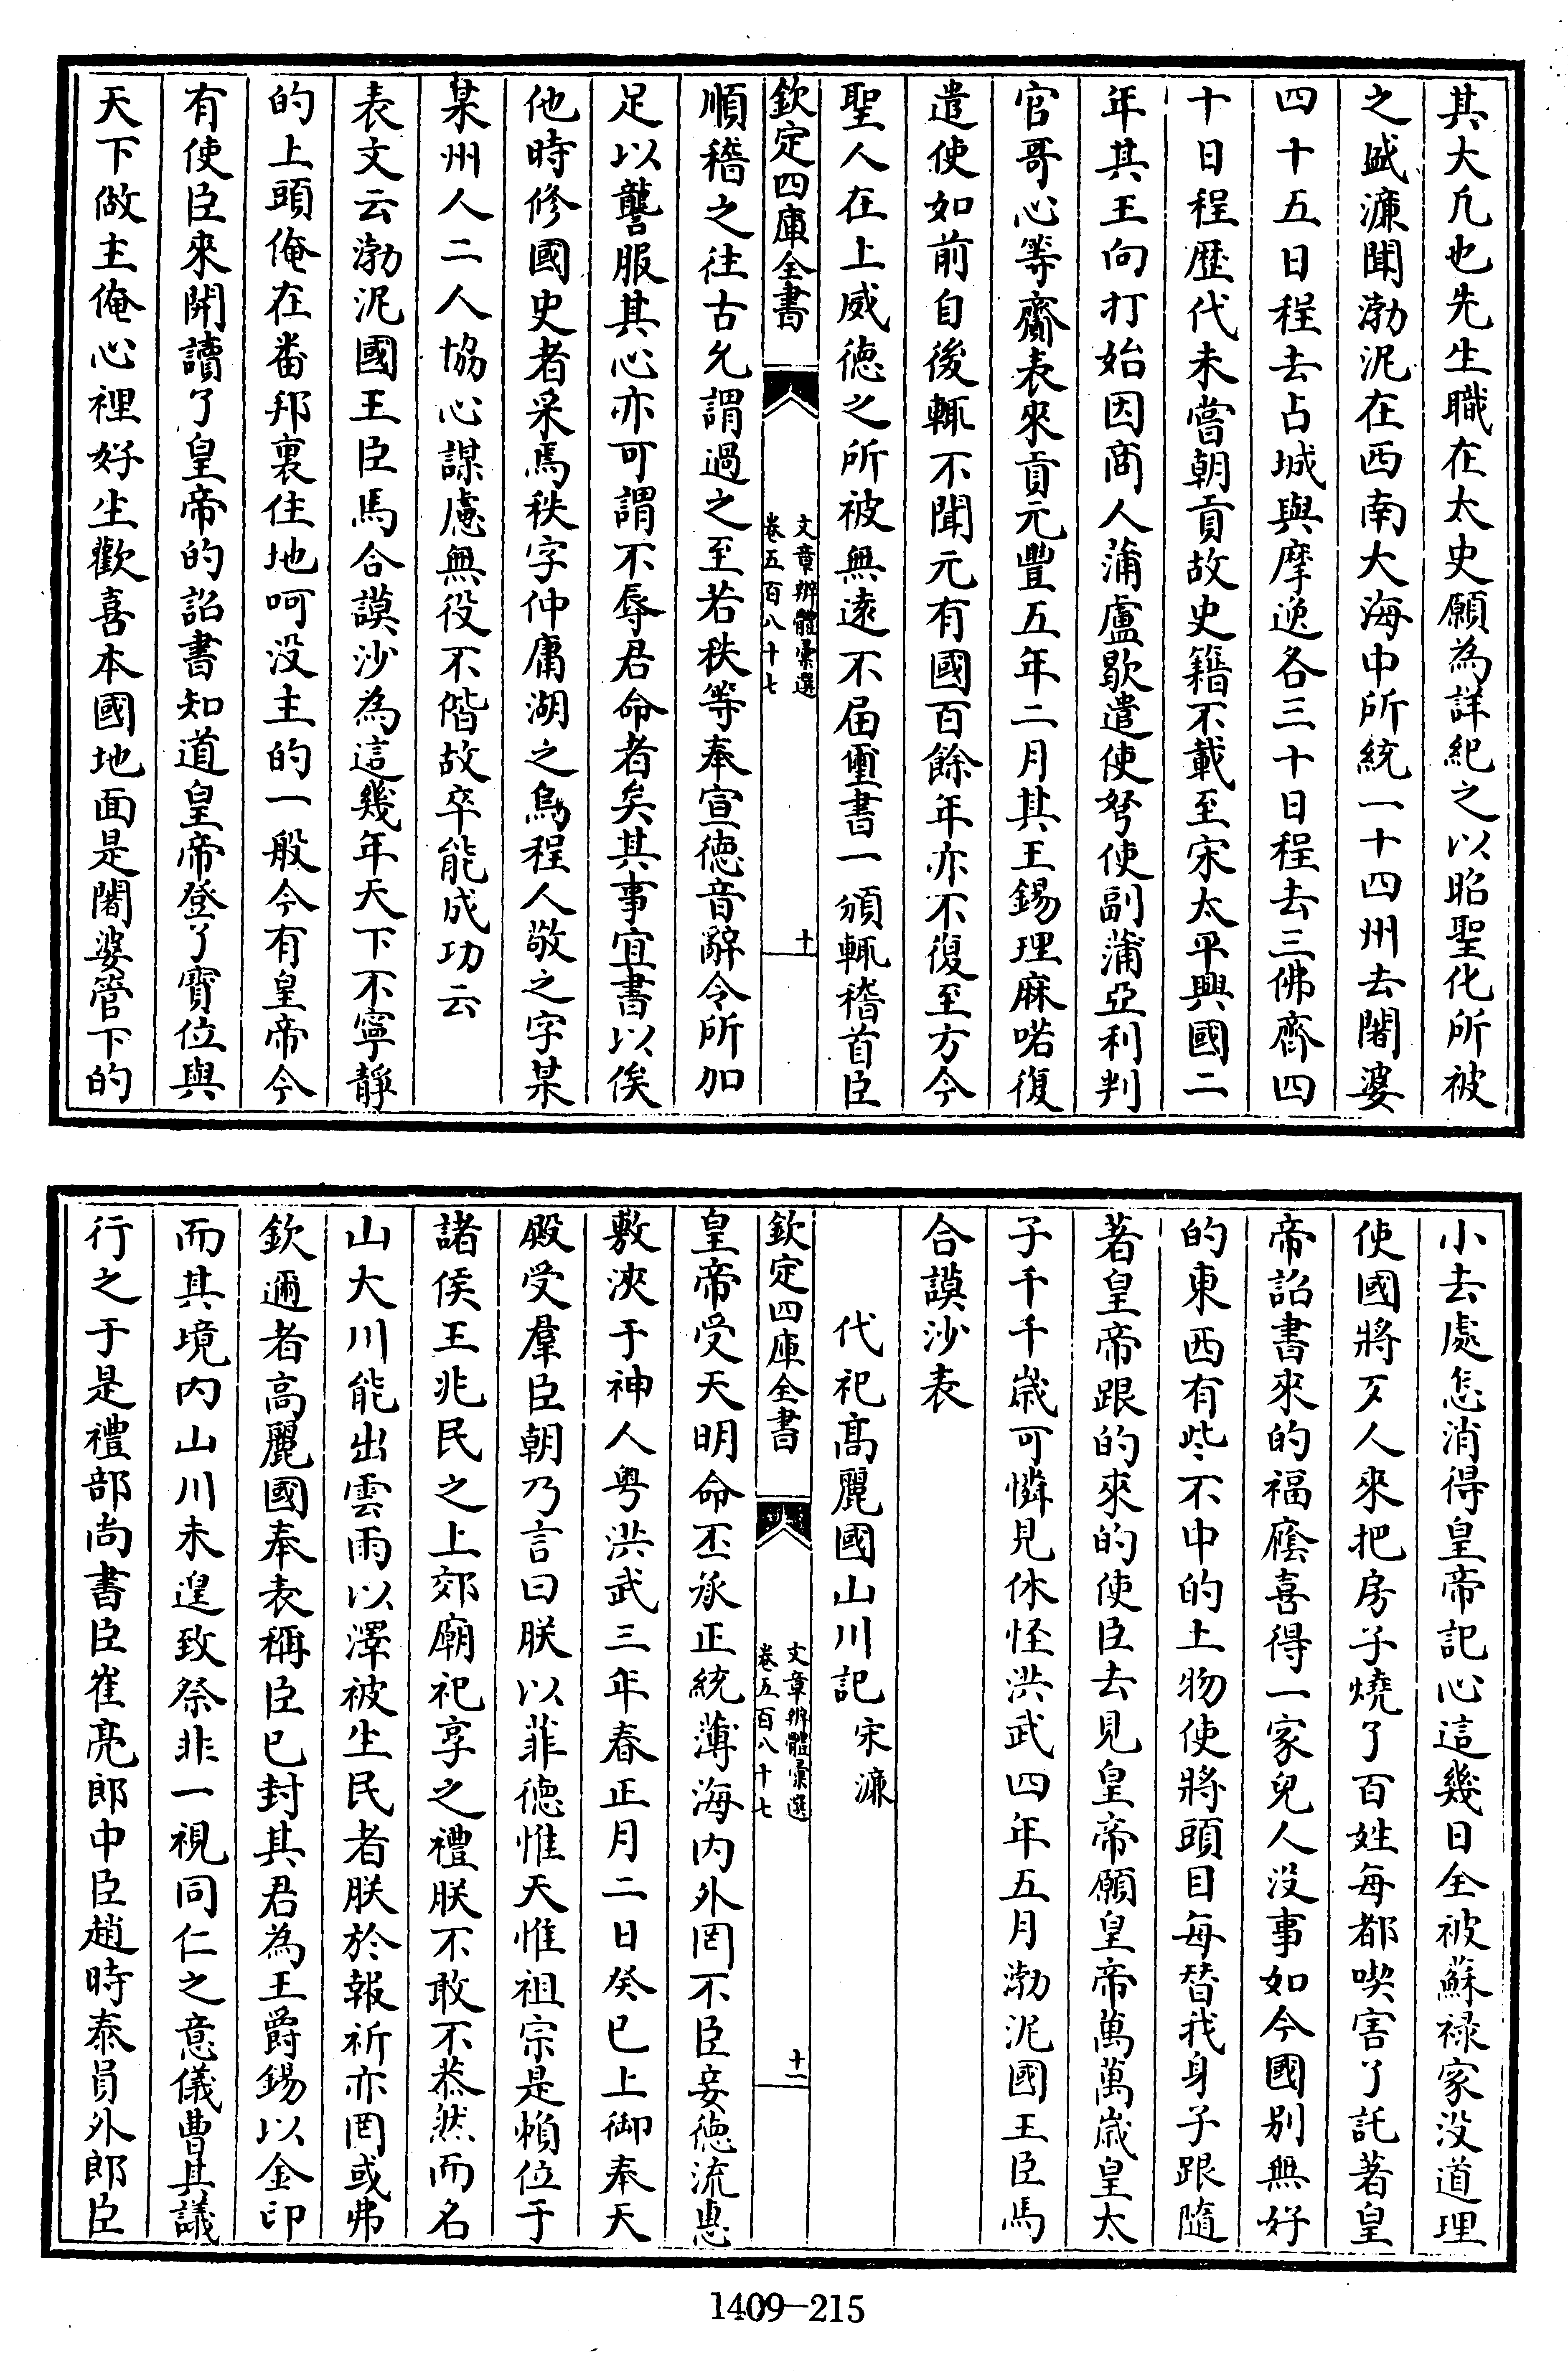 其大凡也先生職在太史願為詳紀之以昭聖化所被
之盛濂聞渤泥在西南大海中所統一十四州去闍婆
四十五日程去占城與摩逸各三十日程去三佛齊四
十日程歴代未嘗朝貢故史籍不載至宋太平興國二
年其王向打始因商人蒲盧歇遣使弩使副蒲亞利判
官哥心等齎表來貢元豐五年二月其王錫理麻喏復
遣使如前自後輒不聞元有國百餘年亦不復至方今
聖人在上威徳之所被無逺不届璽書一頒輒稽首臣
欽定四庫全書
文章辨體彚選
卷五百八十七
十
順稽之往古允謂過之至若秩等奉宣徳音辭令所加
足以讋服其心亦可謂不辱君命者矣其事宜書以俟
他時修國史者采焉秩字仲庸湖之烏程人敬之字某
某州人二人協心謀慮無役不偕故卒能成功云
表文云渤泥國王臣馬合謨沙為這幾年天下不寧靜
的上頭俺在番邦裏住地呵没主的一般今有皇帝今
有使臣來開讀了皇帝的詔書知道皇帝登了寳位與
天下做主俺心裡好生歡喜本國地面是闍婆管下的
小去處怎消得皇帝記心這幾日全被蘇禄家没道理
使國將歹人來把房子燒了百姓每都喫害了託著皇
帝詔書來的福廕喜得一家兒人没事如今國别無好
的東西有些不中的土物使將頭目每替我身子跟隨
著皇帝跟的來的使臣去見皇帝願皇帝萬萬嵗皇太
子千千嵗可憐見休怪洪武四年五月渤泥國王臣馬
合謨沙表
代祀髙麗國山川記 宋濂
欽定四庫全書
文章辨體彚選
卷五百八十七
十一
皇帝受天明命丕承正統薄海内外罔不臣妾徳流惠
敷浹于神人粤洪武三年春正月二日癸巳上御奉天
殿受羣臣朝乃言曰朕以菲徳惟天惟祖宗是頼位于
諸侯王兆民之上郊廟祀享之禮朕不敢不恭然而名
山大川能出雲雨以澤被生民者朕於報祈亦罔或弗
欽邇者高麗國奉表稱臣已封其君為王爵錫以金印
而其境内山川未遑致祭非一視同仁之意儀曹其議
行之于是禮部尚書臣崔亮郎中臣趙時泰員外郎臣
1409—215